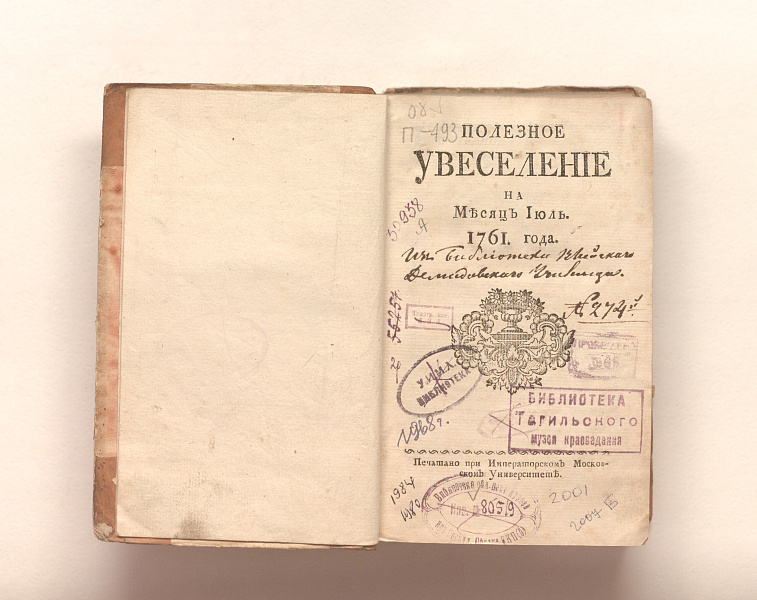 08
П-493
ПОЛЕЗНОЕ
УВЕСЕЛЕНІЕ
НА
Мѣсяцъ Іюль.
1761. года.
Изъ Библіотеки
Демидовскаго Училища.
№ 274
55257
У.И.М.Л.
БИБЛИОТЕКА
1968 г.
БИБЛИОТЕКА
Тагильского
музея краеведения
Печатано при Императорскомъ Москов-
скомъ Университетѣ.
1984
1980
Библиотека
Инв. № 80519
2001
2007